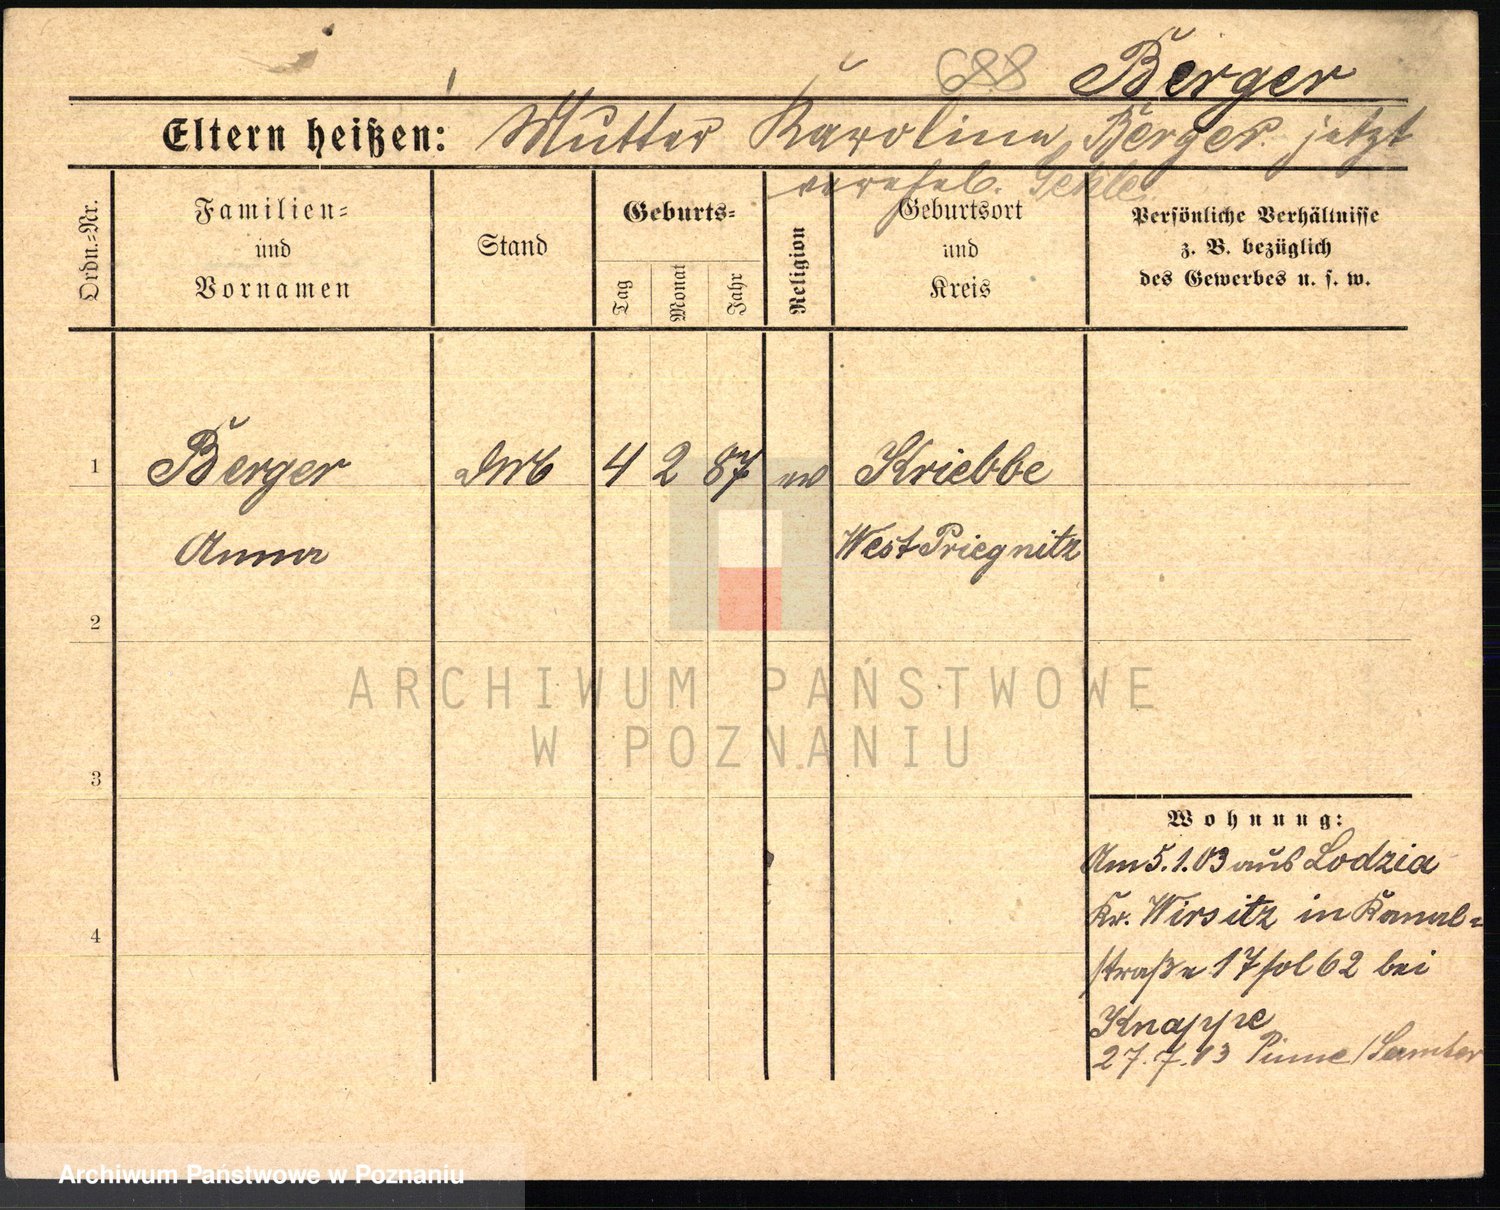 688 Berger
Eltern heißen: Mutter Karoline Berger jetzt
verehel.
Ordn.-Nr.
Familien-
und
Vornamen
Stand
Geburts-
Tag
Monat
Jahr
Religion
Geburtsort
und
Kreis
Persönliche Verhältnisse
z. B. bezüglich
des Gewerbes u. s. w.
1 Berger 4 2 87 ev Kriebbe
Anna West Priegnitz
2
3
4
ARCHIWUM PAŃSTWOWE
W POZNANIU
Wohnung:
Am 5.1.03 aus Lodzia
Kr. Wirsitz in Kanal-
straße 17 fol 62 bei
Knappe
27.7.03 Pinne / Samter
Archiwum Państwowe w Poznaniu